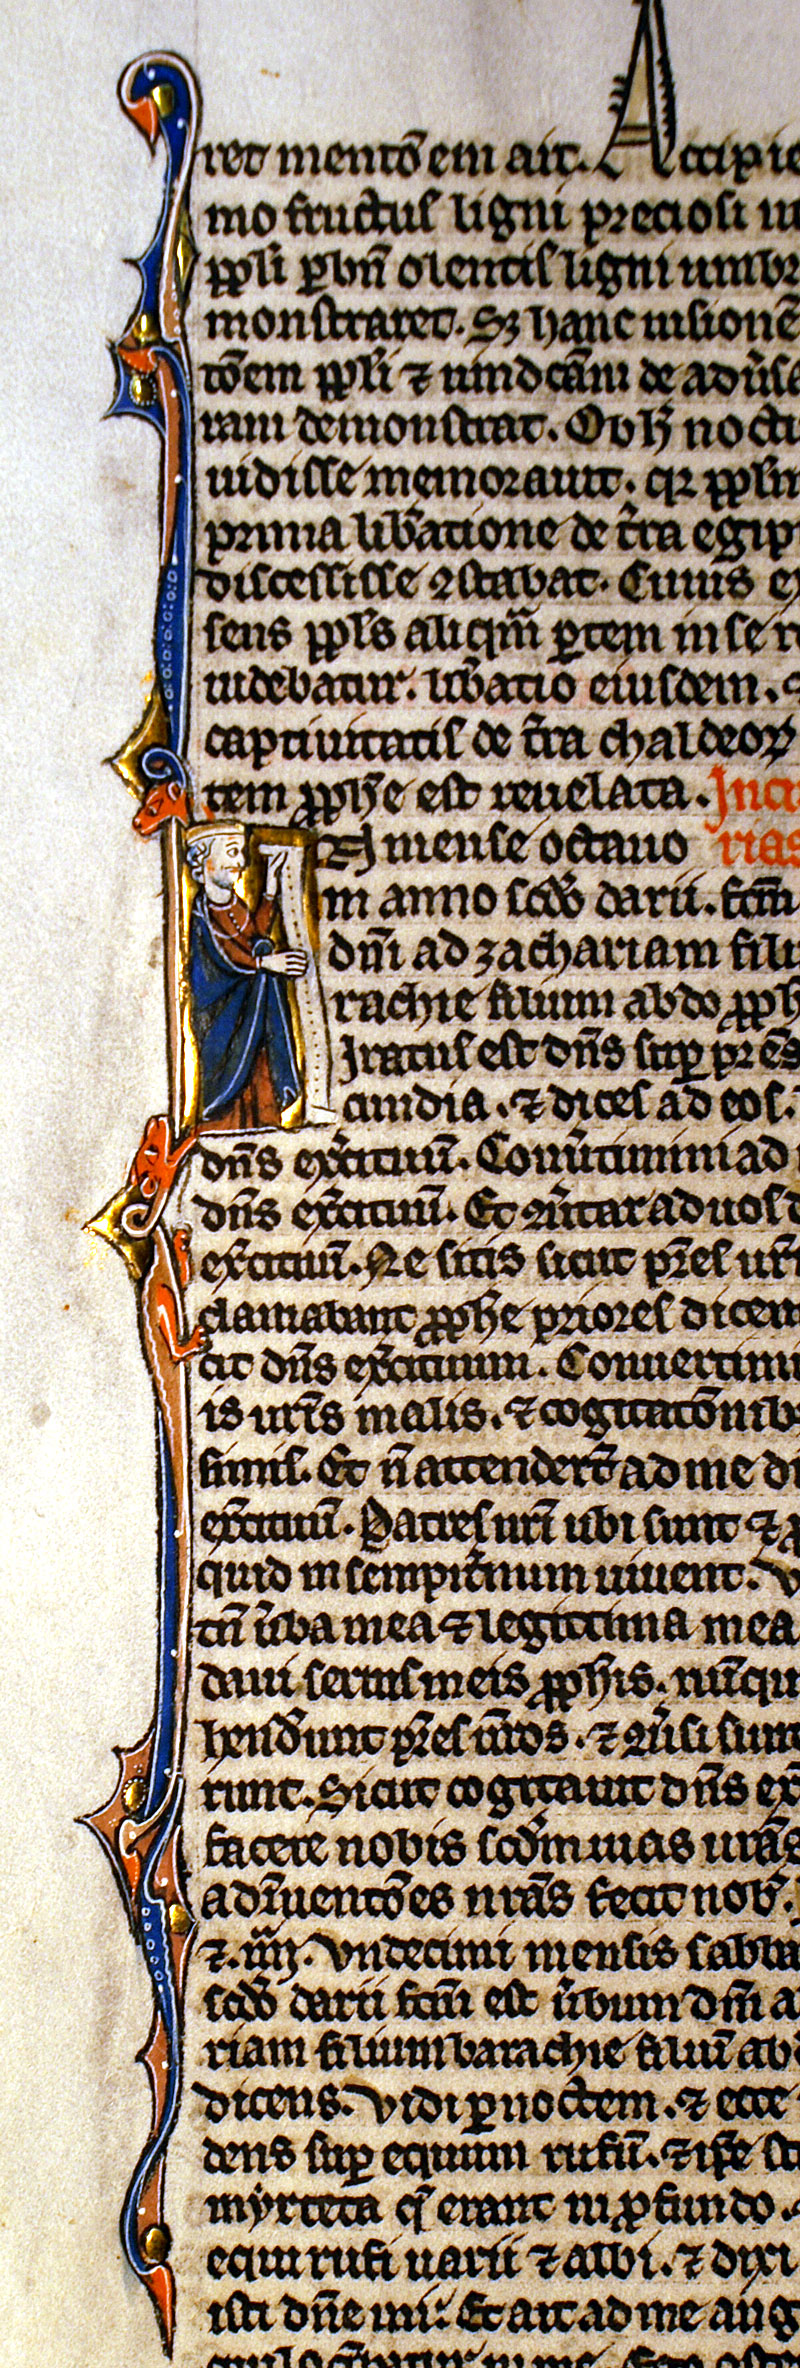 ret mentōem ait. Accipie
mo fructus ligni preciosi
ppli ꝑ bñ olentis ligni umbr
monstraret. Sꝫ hanc uisionē
tōem ppli ⁊ uindctām de adūsa
ram demonstrat. noctu
uidisse memorauit. qꝛ pplm
prima lib̄atione de t̄ra egipt
discessisse ꝯstabat. Cuius ex
sens ppl̄s aliqm̄ ꝑtem in se re
uidebatur. lib̄atio eiusdem.
captiuitatis de t̄ra chaldeoꝝ
tem ꝓph̄e est reuelata. Inci
mense octauo rias
in anno scdo darii. fcm̄
dn̄i ad zachariam filiu
rachie filium abdo ꝓph
Iratus est dn̄s suꝑ pr̄es
cundia. ⁊ dices ad eos.
dn̄s ex̄cituū. Conūtimini ad
dn̄s ex̄cituū. Et ꝯūtar ad uos d
ex̄cituū. Ne sitis sicut pr̄es ur̄i
clamabant ꝓph̄e priores dicen
cit dn̄s ex̄cituum. Conuertimi
is ur̄is malis. ⁊ cogitatōnibꝫ
simis. Et n̄ attenderūt ad me di
ex̄cituū. Patres ur̄i ubi sunt ⁊ ꝓ
quid in sempit̄num uiuent. V
tn̄ ūba mea ⁊ legittima mea
daui seruis meis ꝓph̄is. nūqui
hend̄unt pr̄es ūros. ⁊ ꝯūsi sunt
runt. Sicut cogitauit dn̄s ex̄
facere nobis scdm uias urās
adīuentōes nrās fecit nob̄.
⁊ .iiii. Vndecimi mensis sabba
scdo darii fcm̄ est ūbum dn̄i a
riam filium barachie filiū abd
dicens. Vidi ꝑ noctem. ⁊ ecce
dens suꝑ equum rufū. ⁊ ip̄e sta
myrteta q̄ erant in ꝓfundo.
equi rufi uarii ⁊ albi. ⁊ dixi
isti dn̄e mi. Et ait ad me ang
in me. Ego